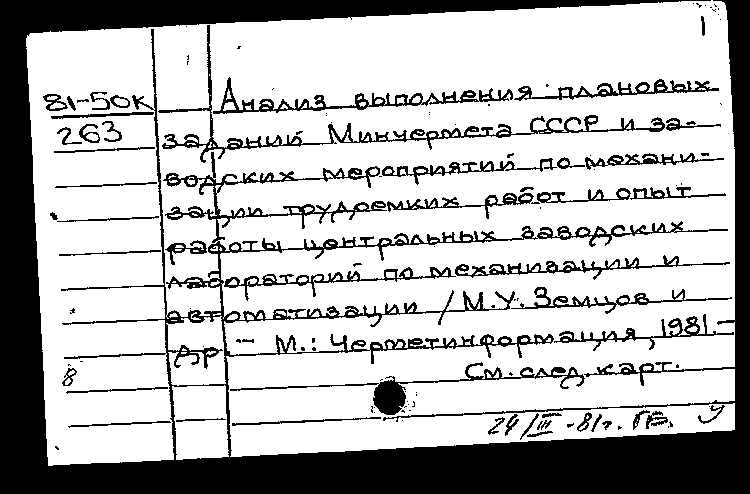 1
81-50к Анализ выполнения плановых
263 заданий Минчермета СССР и за-
водских мероприятий по механи-
зации трудоемких работ и опыт
работы центральных заводских
лабораторий по механизации и
автоматизации / М.У. Земцов и
др. – М.: Черметинформация, 1981.–
См. след. карт.
8
24/III-81г.